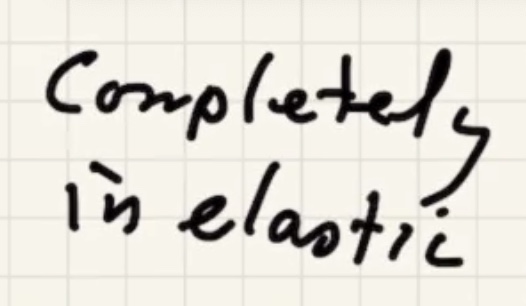 Completely
in elastic